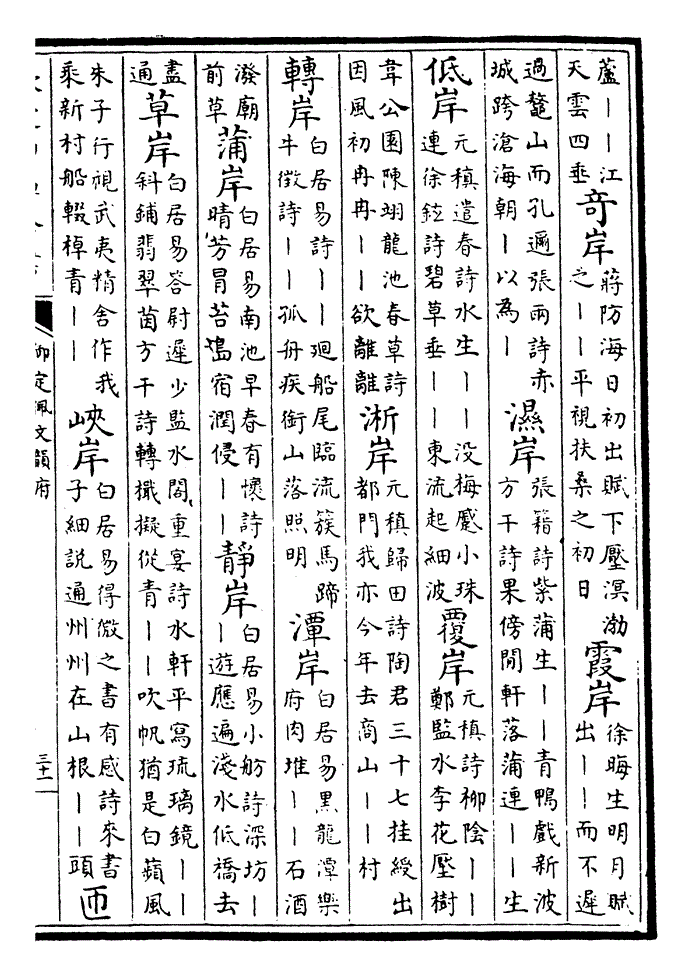 蘆丨丨江
天雲四垂
奇岸
蔣防海日初出賦下壓溟渤
之丨丨平視扶桑之初日
霞岸
徐晦生明月賦
出丨丨而不遲
過鼇山而孔邇張兩詩赤
城跨滄海朝丨以為丨
濕岸
張籍詩紫蒲生丨丨青鴨戲新波
方干詩果傍閒軒落蒲連丨丨生
低岸
元稹遣春詩水生丨丨没梅蹙小珠
連徐鉉詩碧草垂丨丨東流起細波
覆岸
元稹詩柳陰丨丨
鄭監水李花壓樹
韋公園陳翊龍池春草詩
因風初冉冉丨丨欲離離
淅岸
元稹歸田詩陶君三十七挂綬出
都門我亦今年去商山丨丨村
轉岸
白居易詩丨丨廻船尾臨流簇馬蹄
牛徵詩丨丨孤舟疾銜山落照明
潭岸
白居易黑龍潭樂
府肉堆丨丨石酒
潑廟
前草
蒲岸
白居易南池早春有懷詩
晴芳冒苔島宿潤侵丨丨
靜岸
白居易小舫詩深坊丨
丨遊應遍淺水低橋去
盡
通
草岸
白居易答尉遲少監水閣重宴詩水軒平寫琉璃鏡丨丨
斜鋪翡翠茵方干詩轉檝擬從青丨丨吹帆猶是白蘋風
朱子行視武夷精舍作我
乘新村船輟棹青丨丨
峽岸
白居易得微之書有感詩來書
子細說通州州在山根丨丨頭
匝
御定佩文韻府
三十一